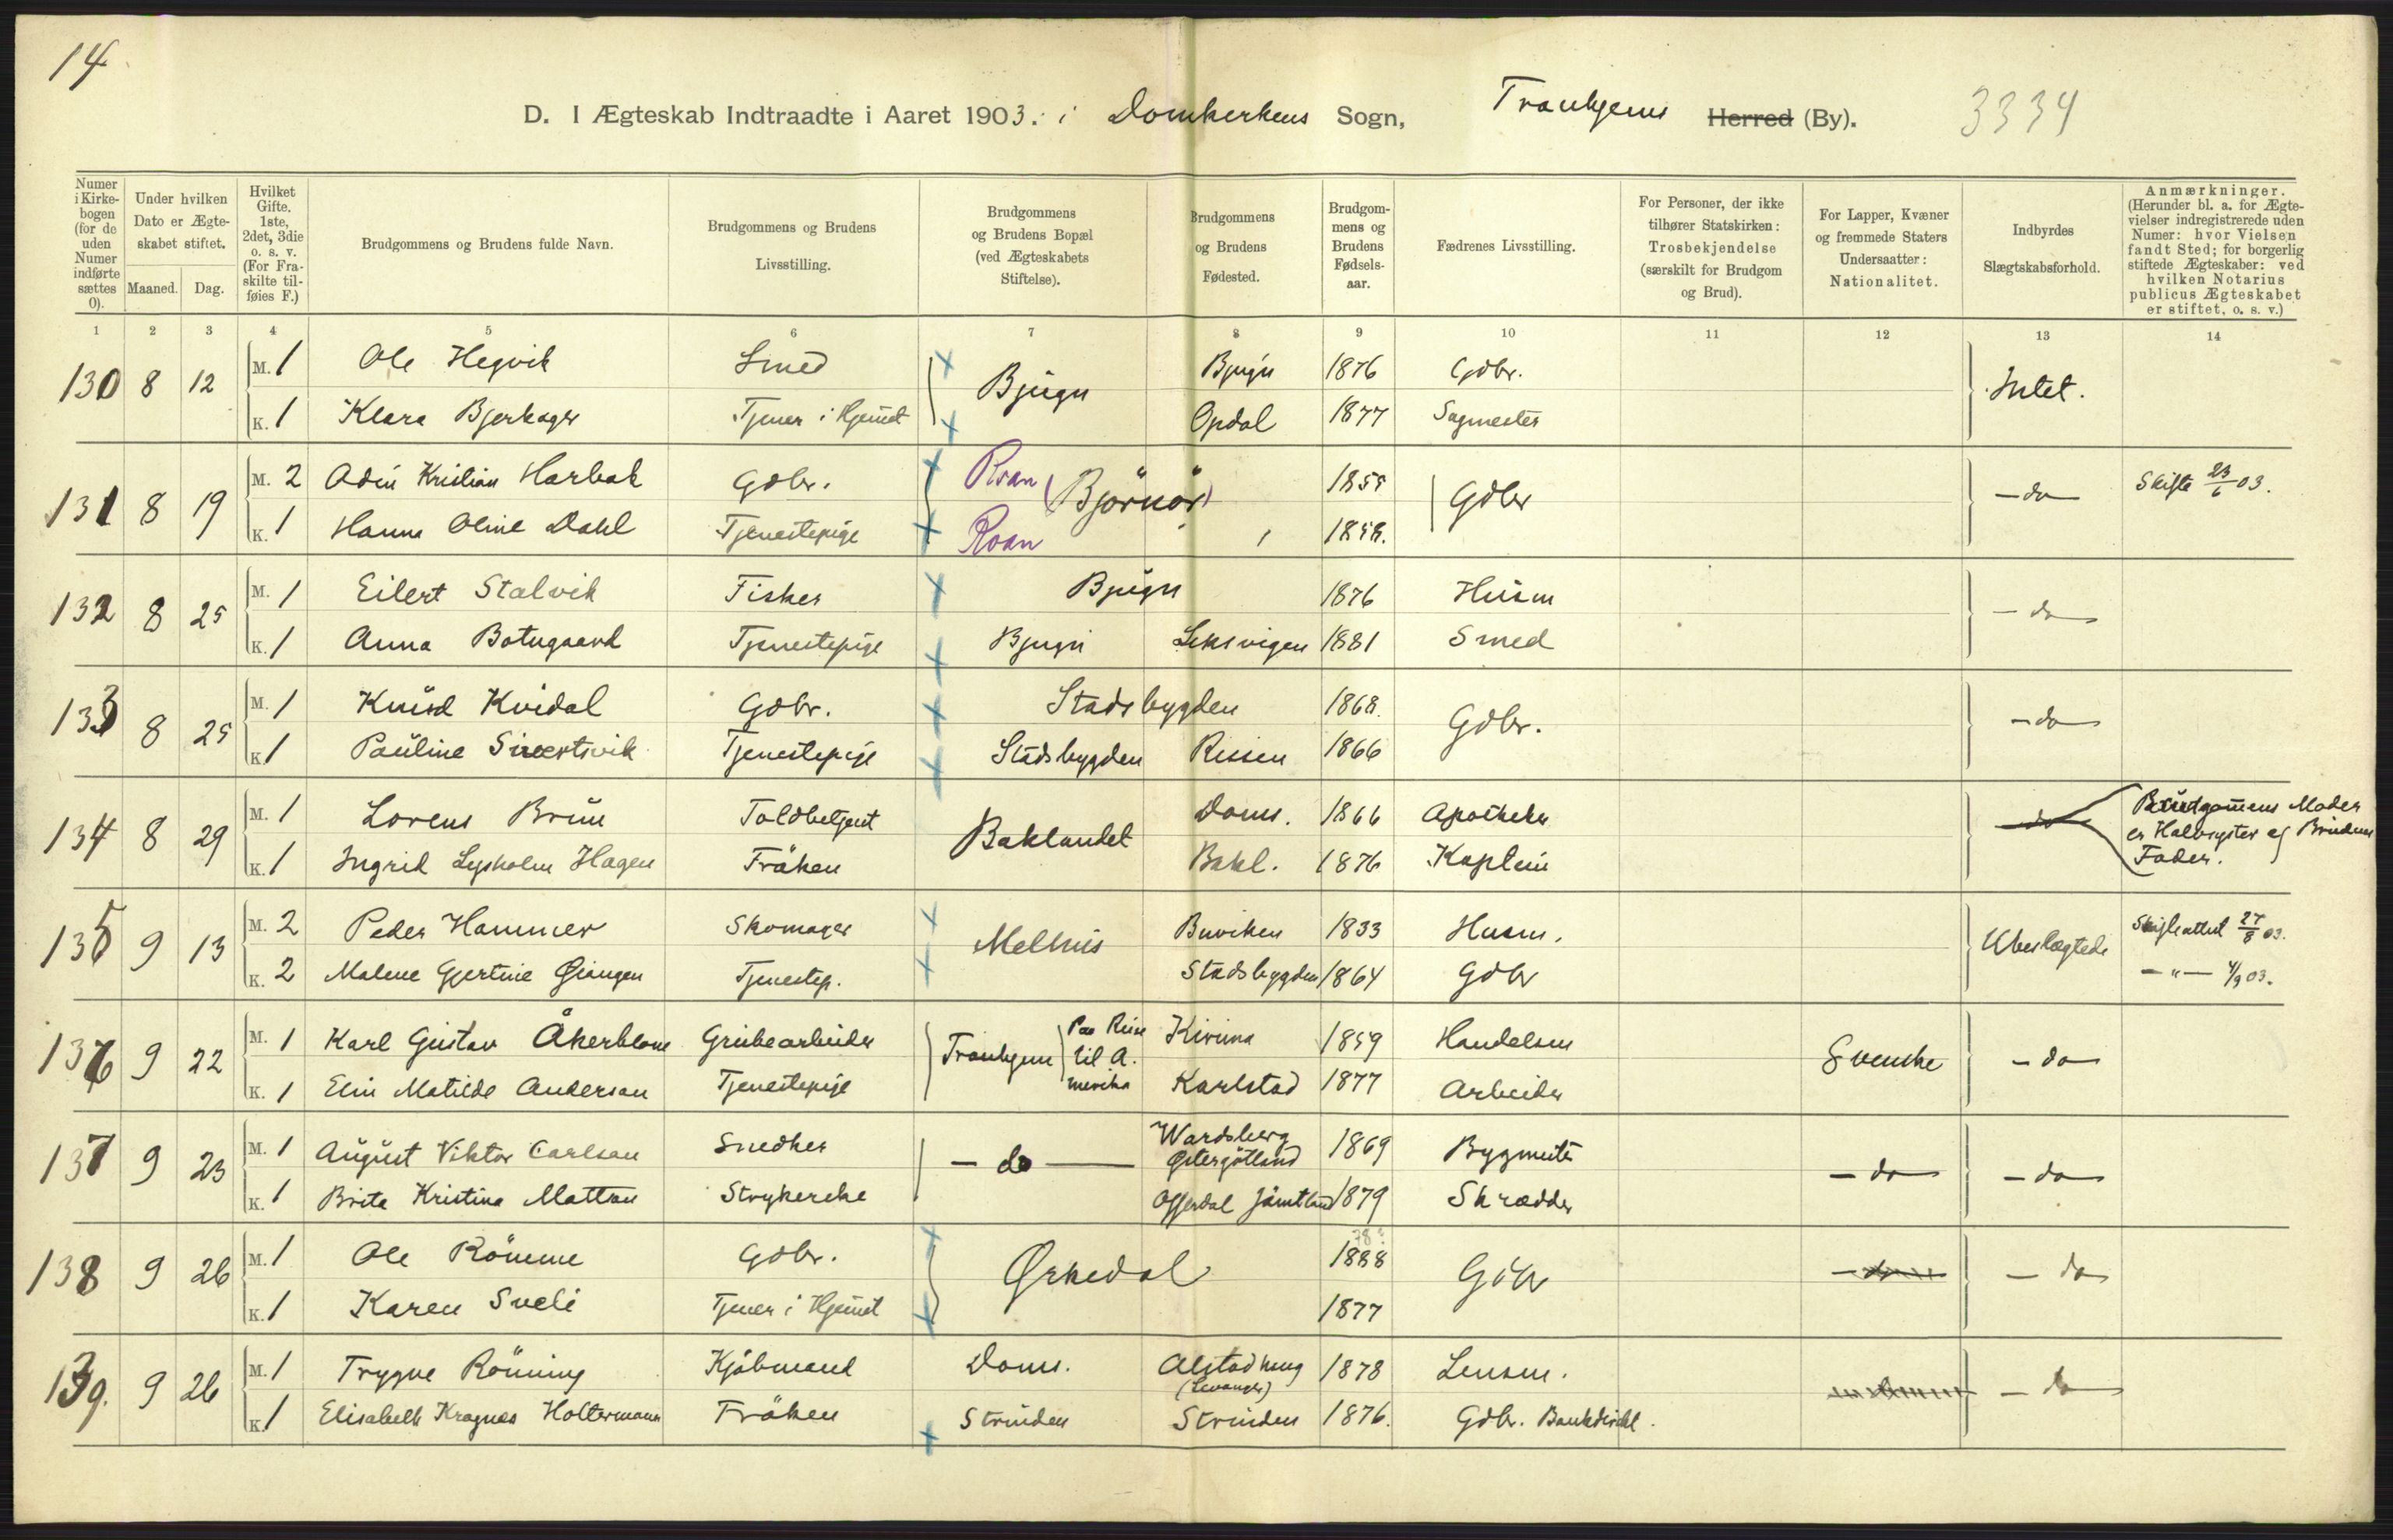 14
D. I Ægteskab Indtraadte i Aaret 1903. i Domkerkens Sogn, Tronhjems Herred (By). 3334
Numer i Kirkebogen (for de uden Numer indførte sættes 0).
Under hvilken Dato er Ægteskabet stiftet.
Maaned. Dag.
Hvilket Gifte, 1ste, 2det, 3die o. s. v. (For Fraskilte tilføies F.)
Brudgommens og Brudens fulde Navn.
Brudgommens og Brudens Livsstilling.
Brudgommens og Brudens Bopæl (ved Ægteskabets Stiftelse).
Brudgommens og Brudens Fødested.
Brudgommens og Brudens Fødselsaar.
Fædrenes Livsstilling.
For Personer, der ikke tilhører Statskirken: Trosbekjendelse (særskilt for Brudgom og Brud).
For Lapper, Kvæner og fremmede Staters Undersaatter: Nationalitet.
Indbyrdes Slægtskabsforhold.
Anmærkninger. (Herunder bl. a. for Ægtevielser indregistrerede uden Numer: hvor Vielsen fandt Sted; for borgerlig stiftede Ægteskaber: ved hvilken Notarius publicus Ægteskabet er stiftet, o. s. v.)
1 2 3 4 5 6 7 8 9 10 11 12 13 14
130 8 12 M. 1 Ole Hegvik Smed Bjugn Bjugn 1876 Gdbr. Intet.
K. 1 Klara Bjerkager Tjener i Hjemmet Opdal 1877 Sagmester
131 8 19 M. 2 Adin Kristian Harbak Gdbr. Roan (Björnör) 1855 Gdbr - do - Skifte 23/6 03.
K. 1 Hanna Oline Dahl Tjenestepige Roan 1858.
132 8 25 M. 1 Eilert Stalvik Fisker Bjugn 1876 Husm - do
K. 1 Anna Botngaard Tjenestepige Bjugn Leksvigen 1881 Smed
133 8 25 M. 1 Knud Kvidal Gdbr. Stadsbygden 1868. Gdbr. - do
K. 1 Pauline Sivertsvik Tjenestepige Stadsbygden Rissen 1866
134 8 29 M. 1 Lorens Brun Toldbetjent Baklandet Doms. 1866 Apotheker do Brudgommens Moder
er Halvsyster af Brudens
K. 1 Ingrid Lysholm Hagen Fröken Bakl. 1876 Kaptein Fader.
135 9 13 M. 2 Peder Hammer Skomager Melhus Buviken 1833 Husm. Ubeslægtede Skifteattest 27/8 03.
K. 2 Malene Gjertine Øiangen Tjenestep. Stadsbygden 1864 Gdbr - " - 4/9 03.
136 9 22 M. 1 Karl Gustav Åkerblom Grubearbeider Tronhjem Paa Reise til Amerika Kiruna 1859 Handelsm Svenske - do
K. 1 Elin Matilde Anderson Tjenestepige Karlstad 1877 Arbeider
137 9 23 M. 1 August Viktor Carlson Snedker - do - Wardsberg Østergötland 1869 Bygmester - do - do
K. 1 Brita Kristina Mattson Strykerske Offerdal Jämtland 1879 Skrædder
138 9 26 M. 1 Ole Römme Gdbr. Ørkedal 78? 1888 Gdbr - do
K. 1 Karen Sneli Tjener i Hjemmet 1877
139. 9 26 M. 1 Trygve Rönning Kjöbmand Doms. Alstadhaug (Levanger) 1878 Lensm. - do
K. 1 Elisabeth Kragnæs Holtermann Fröken Strinden Strinden 1876. Gdbr. Bankdirekt.